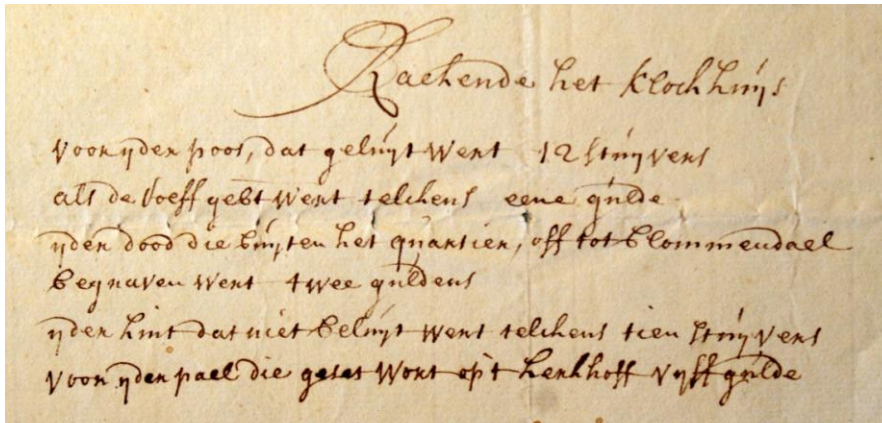 Rackende het Klockhuijs
voor ijder poos, dat geluijt wert 12 stuijvers
als de Roeff gebt wert telckens eene gulde
ijder dood die buijten het quartier, off tot Blommendael
begraven wert twee guldens
ijder kint dat niet beluijt wert telckens tien stuijvers
voor ijder pael die geset wort op't kerkhoff vijff gulde